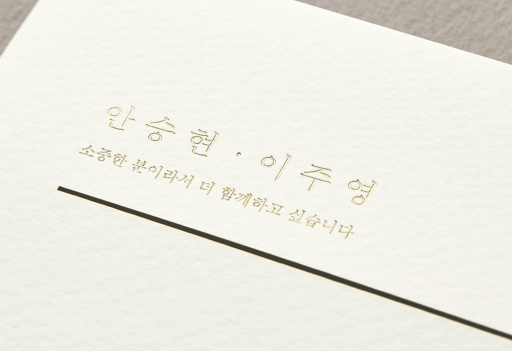 안승현 · 이주영
소중한 분이라서 더 함께하고 싶습니다